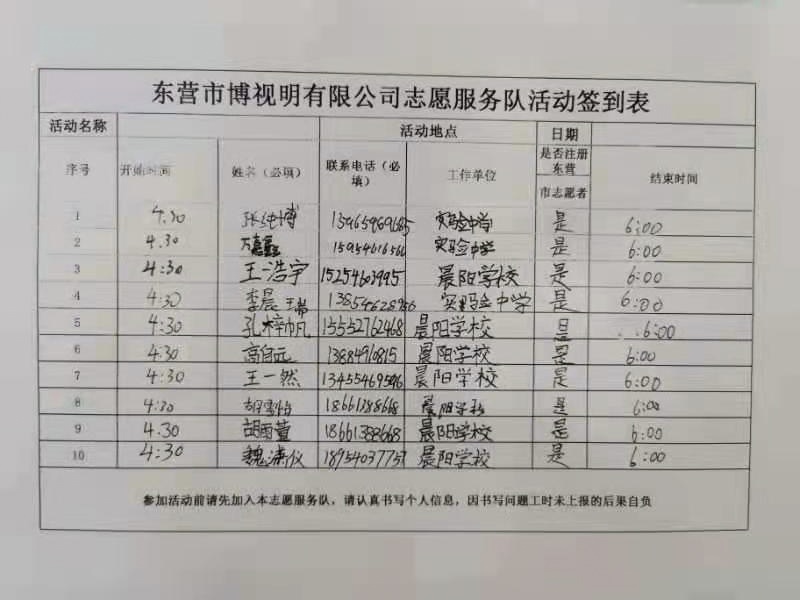 东营市博视明有限公司志愿服务队活动签到表
活动名称 活动地点 日期
序号 开始时间 姓名（必填） 联系电话（必填） 工作单位 是否注册东营市志愿者 结束时间
1 4:30 张纯博 实验中学 是 6:00
2 4.30 15954616566 实验中学 是 6:00
3 4:30 王一浩宇 15254603995 晨阳学校 是 6:00
4 4:30 李晨瑞 实验中学 是 6:00
5 4:30 孔梓帆 15552762468 晨阳学校 是 6:00
6 4:30 高自元 1388490815 晨阳学校 是 6:00
7 4:30 王一然 晨阳学校 是 6:00
8 4:30 18661388668 晨阳学校 是 6:00
9 4.30 胡雨萱 18661388668 晨阳学校 是 6:00
10 4:30 魏潇仪 18954037757 晨阳学校 是 6:00
参加活动前请先加入本志愿服务队，请认真书写个人信息，因书写问题工时未上报的后果自负